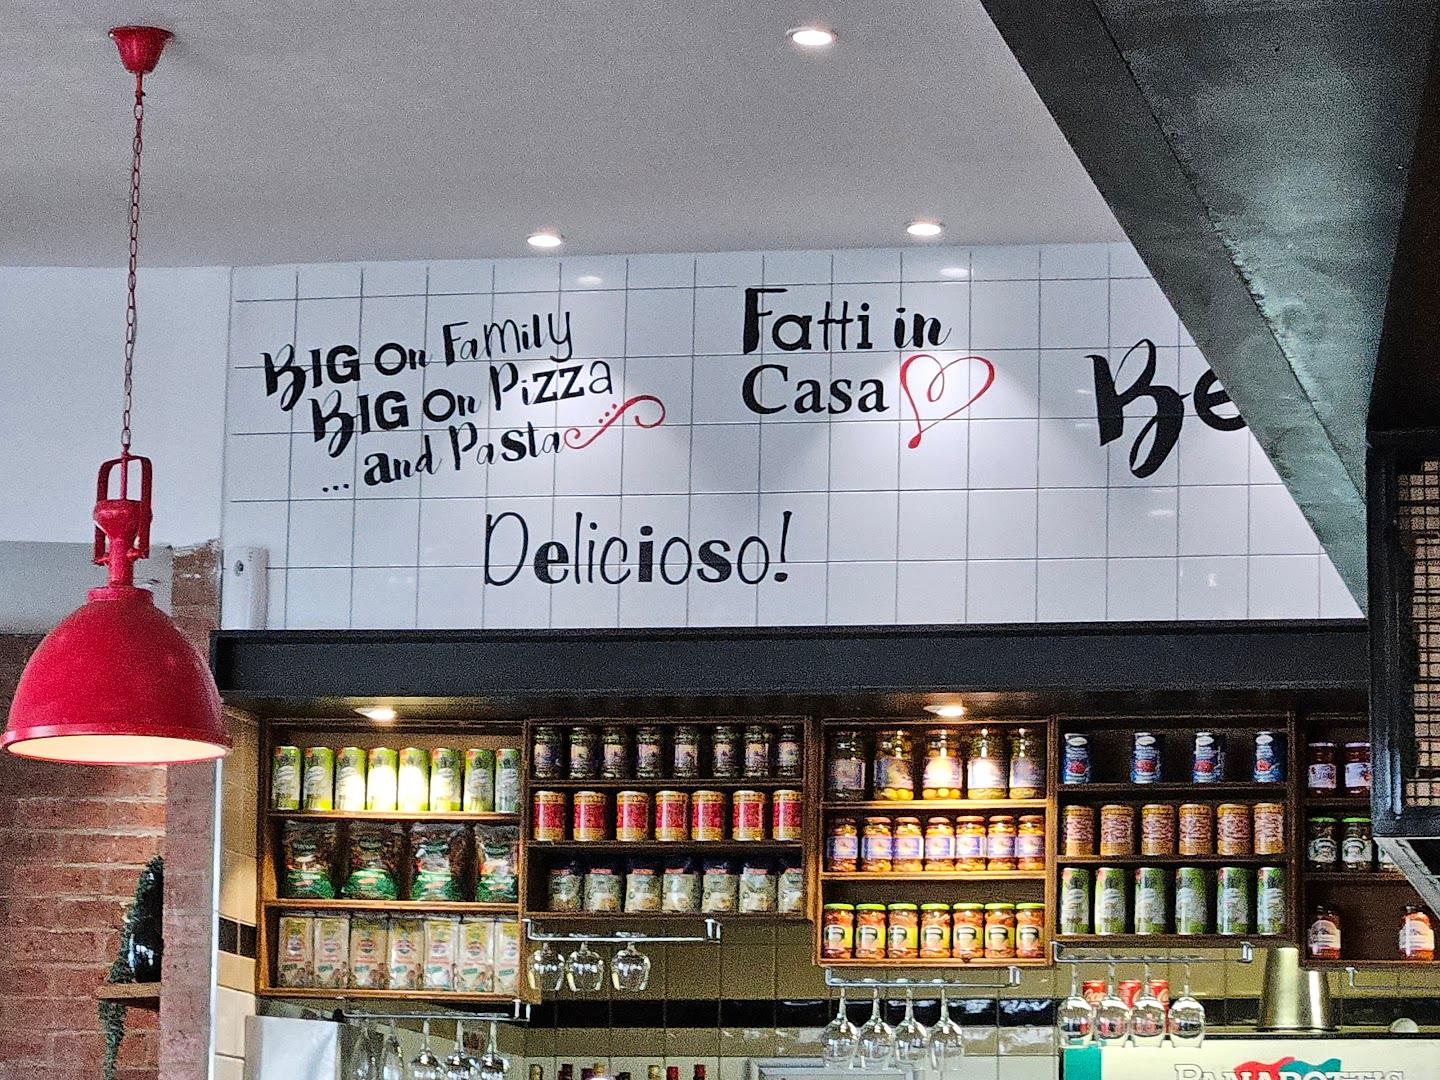 BIG On Family
BIG On Pizza
... and Pasta
Fatti in
Casa
Be
Delicioso!
PANAROTTIS